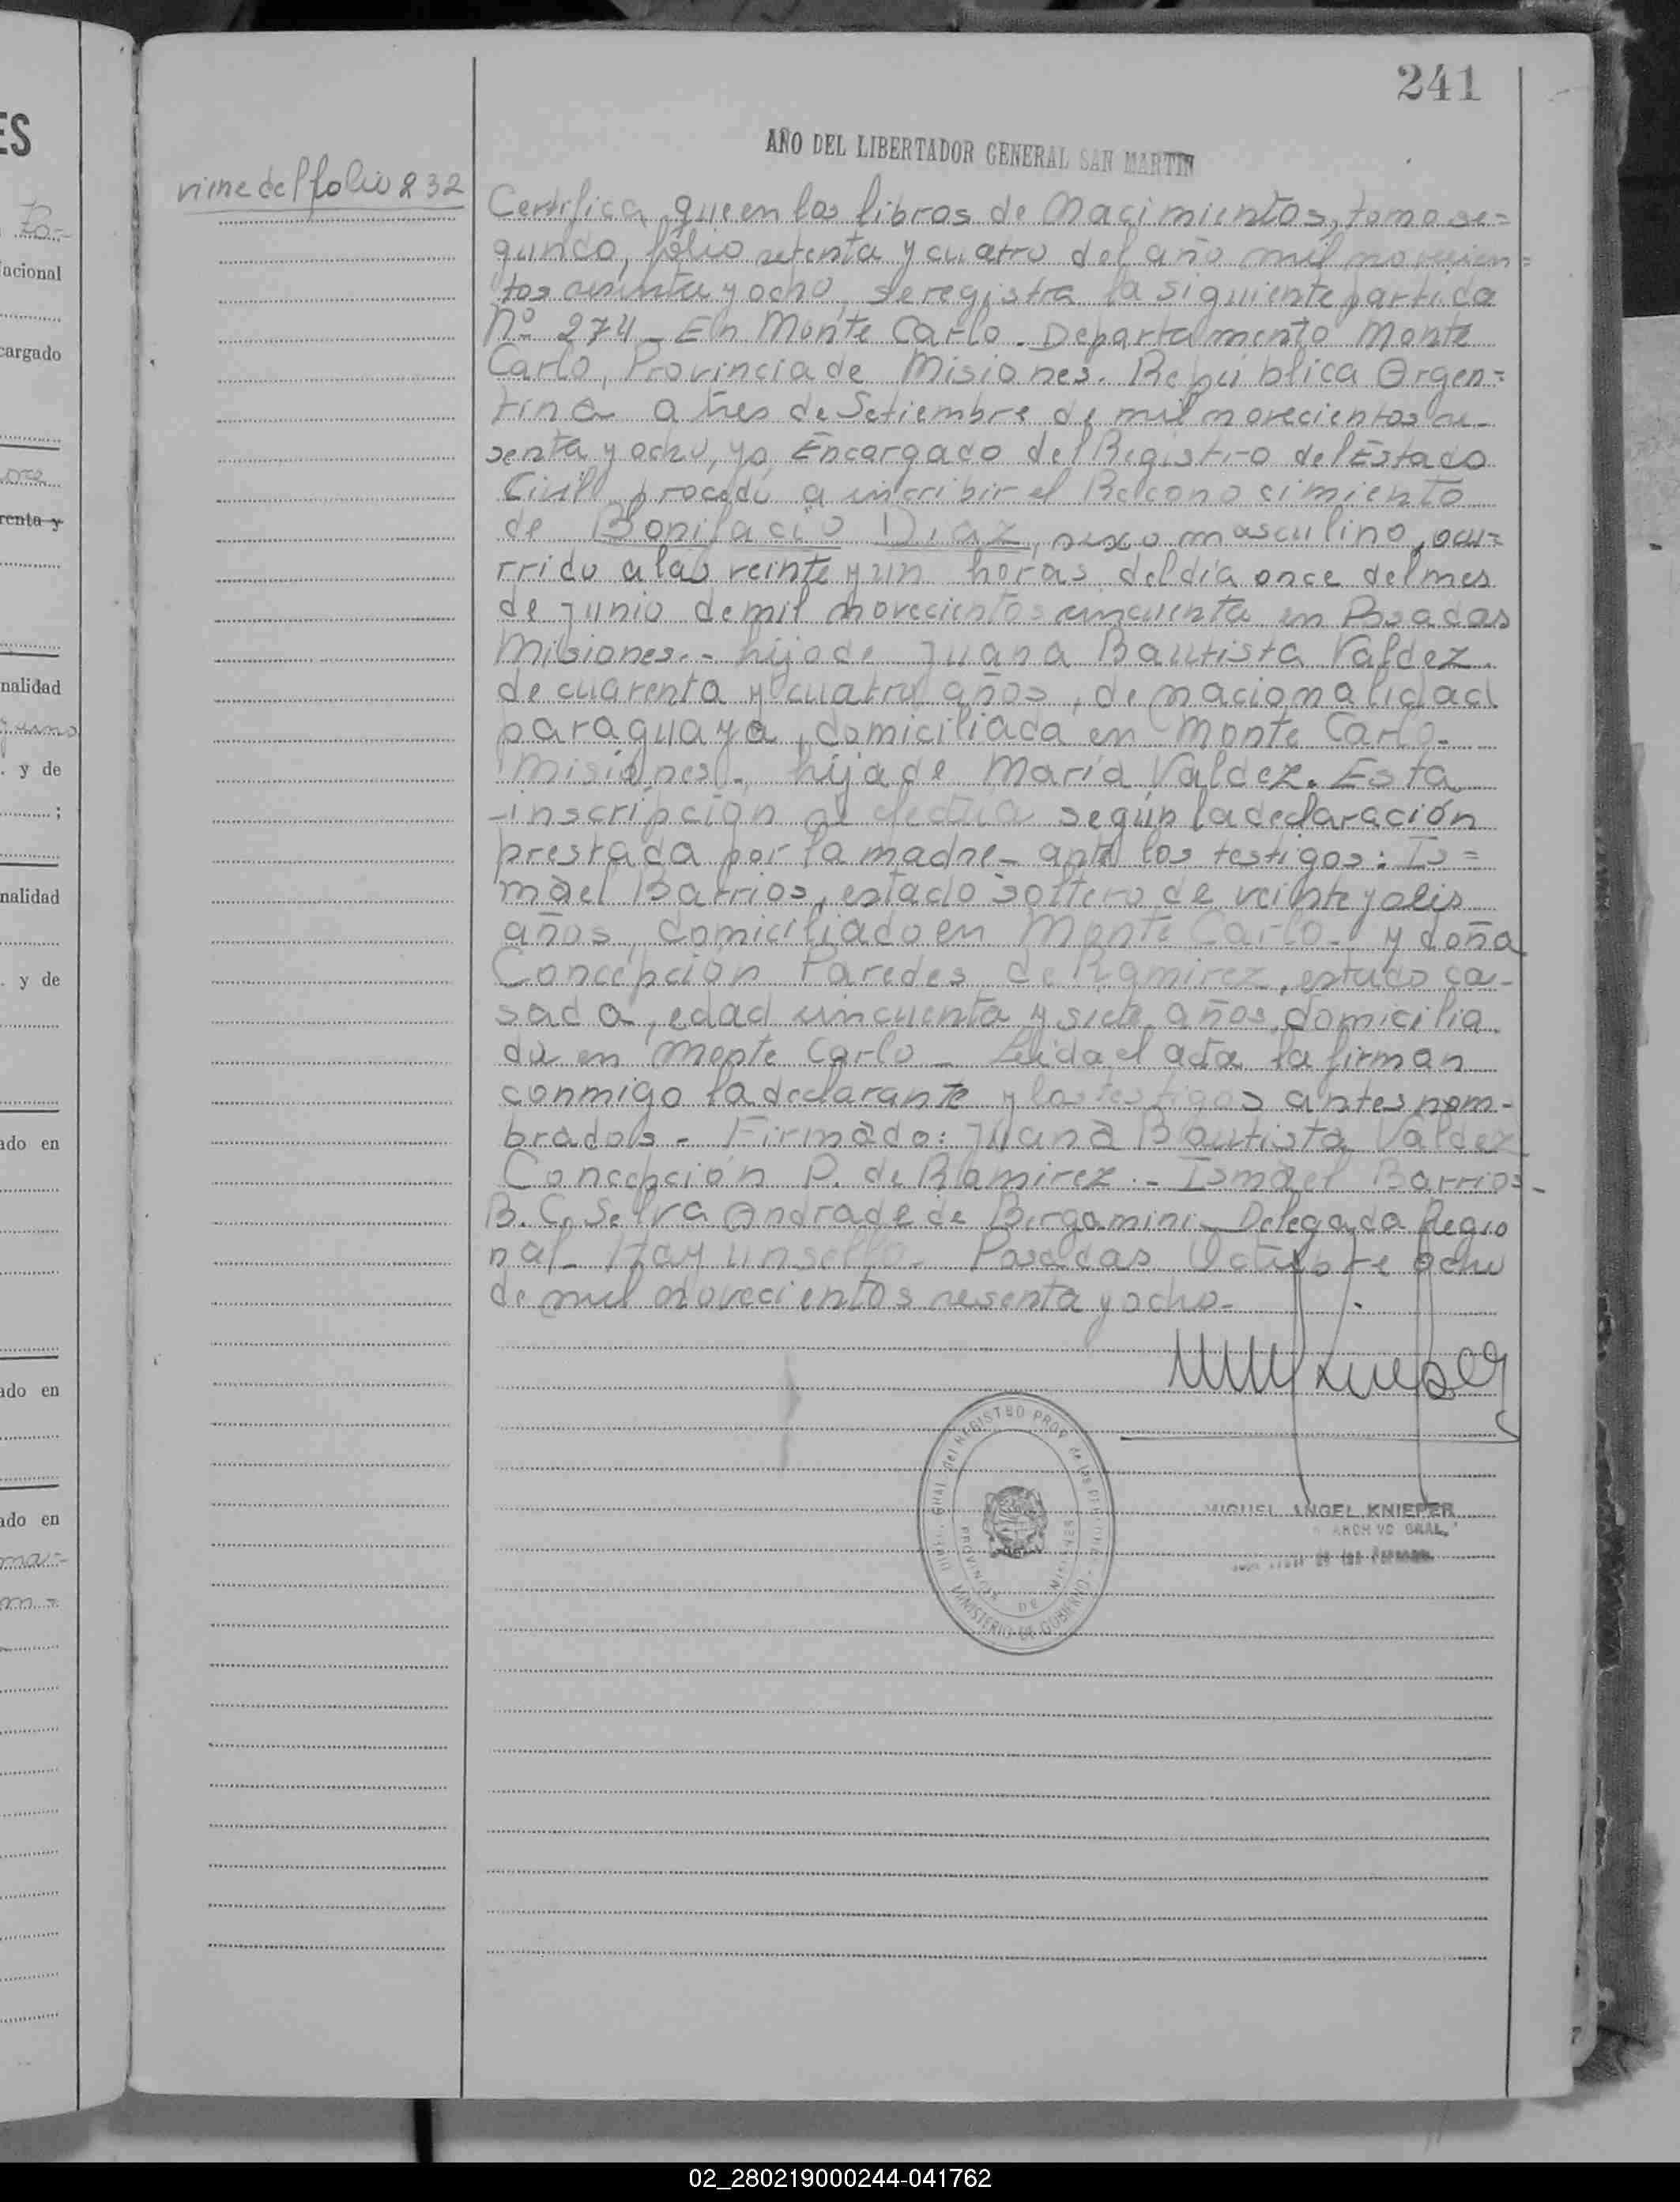 241
AÑO DEL LIBERTADOR GENERAL SAN MARTIN
viene del folio 232
Certifica, que en los libros de Nacimientos, tomo se=
gundo, fólio setenta y cuatro del año mil novecien=
tos sesenta y ocho, se registra la siguiente partida
Nº 274 - En Monte Carlo. Departamento Monte
Carlo, Provincia de Misiones. República Argen=
tina a tres de Setiembre de mil novecientos se-
senta y ocho, yo Encargado del Registro del Estado
Civil procedí a inscribir el Reconocimiento
de Bonifacio Diaz, sexo masculino, ocu=
rrido a las veinte y un horas del día once del mes
de Junio de mil novecientos cincuenta en Posadas
Misiones.- hijo de Juana Bautista Valdez.
de cuarenta y cuatro años, de nacionalidad
paraguaya, domiciliada en Monte Carlo-
Misiones. hija de María Valdez. Esta
-inscripción se efectúa según la declaración
prestada por la madre- ante los testigos: Is=
mael Barrios, estado soltero de veinte y seis
años, domiciliado en Monte Carlo- y doña
Concepción Paredes de Ramirez, estado ca-
sada, edad cincuenta y siete años, domicilia
da en Monte Carlo- Leída el acta la firman
conmigo la declarante y los testigos antes nom-
brados - Firmado: Juana Bautista Valdez
Concepción P. de Ramirez.- Ismael Barrios-
B. C. Selva Andrade de Bergamini- Delegada Regio
nal- Hay un sello- Posadas Octubre ocho
de mil novecientos sesenta y ocho-
REGISTRO PROV. de las
MINISTERIO DE GOBIERNO
PROVINCIA DE MISIONES
MIGUEL ANGEL KNIEPER
ARCHIVO GRAL.
de las Personas
ES
Po-
acional
cargado
renta y
nalidad
. y de
;
nalidad
. y de
ado en
ado en
ado en
02_280219000244-041762